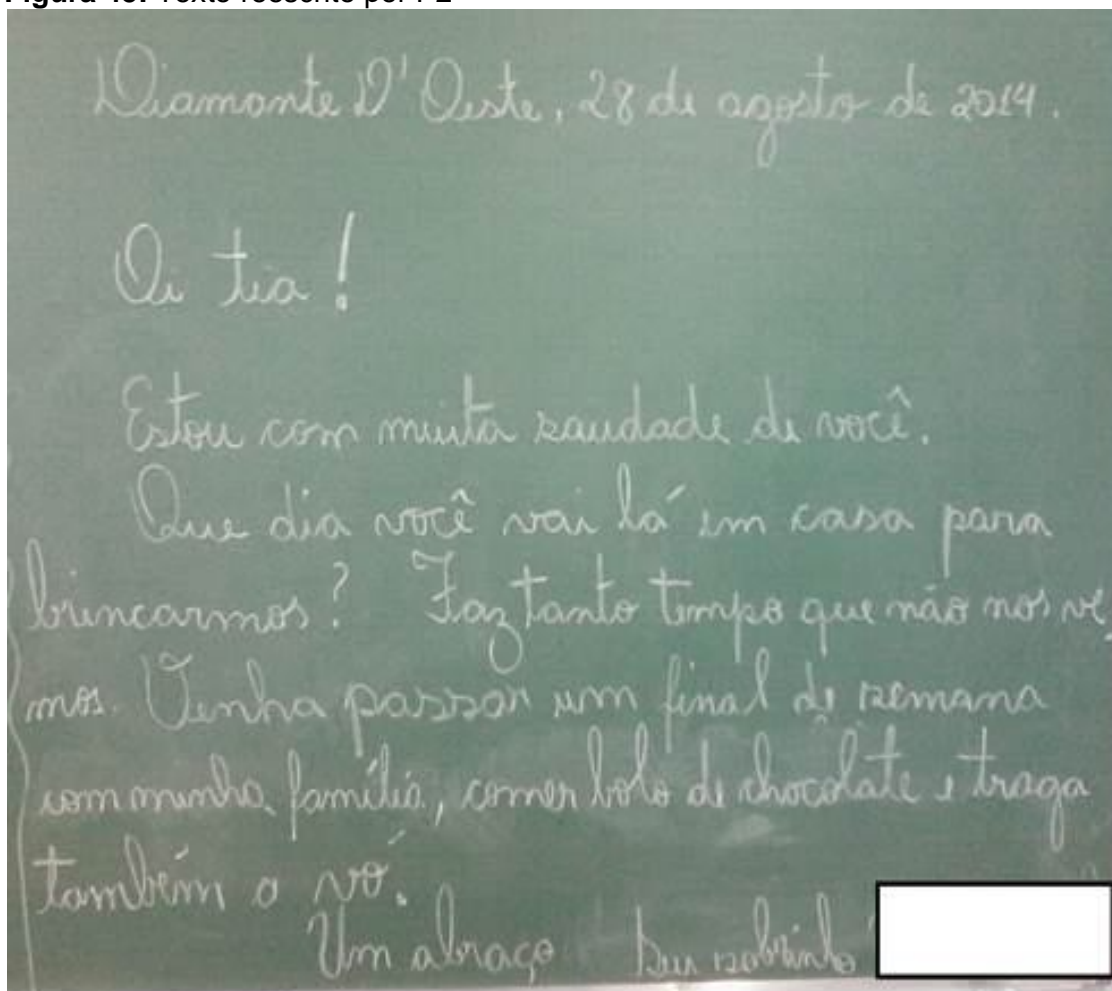 Figura 43: Texto reescrito por P2
Diamante D' Oeste, 28 de agosto de 2014.
Oi tia!
Estou com muita saudade de você.
Que dia você vai lá em casa para
brincarmos? Faz tanto tempo que não nos vê
mos. Venha passar um final de semana
com minha família, comer bolo de chocolate e traga
também o vô.
Um abraço Seu sobrinho